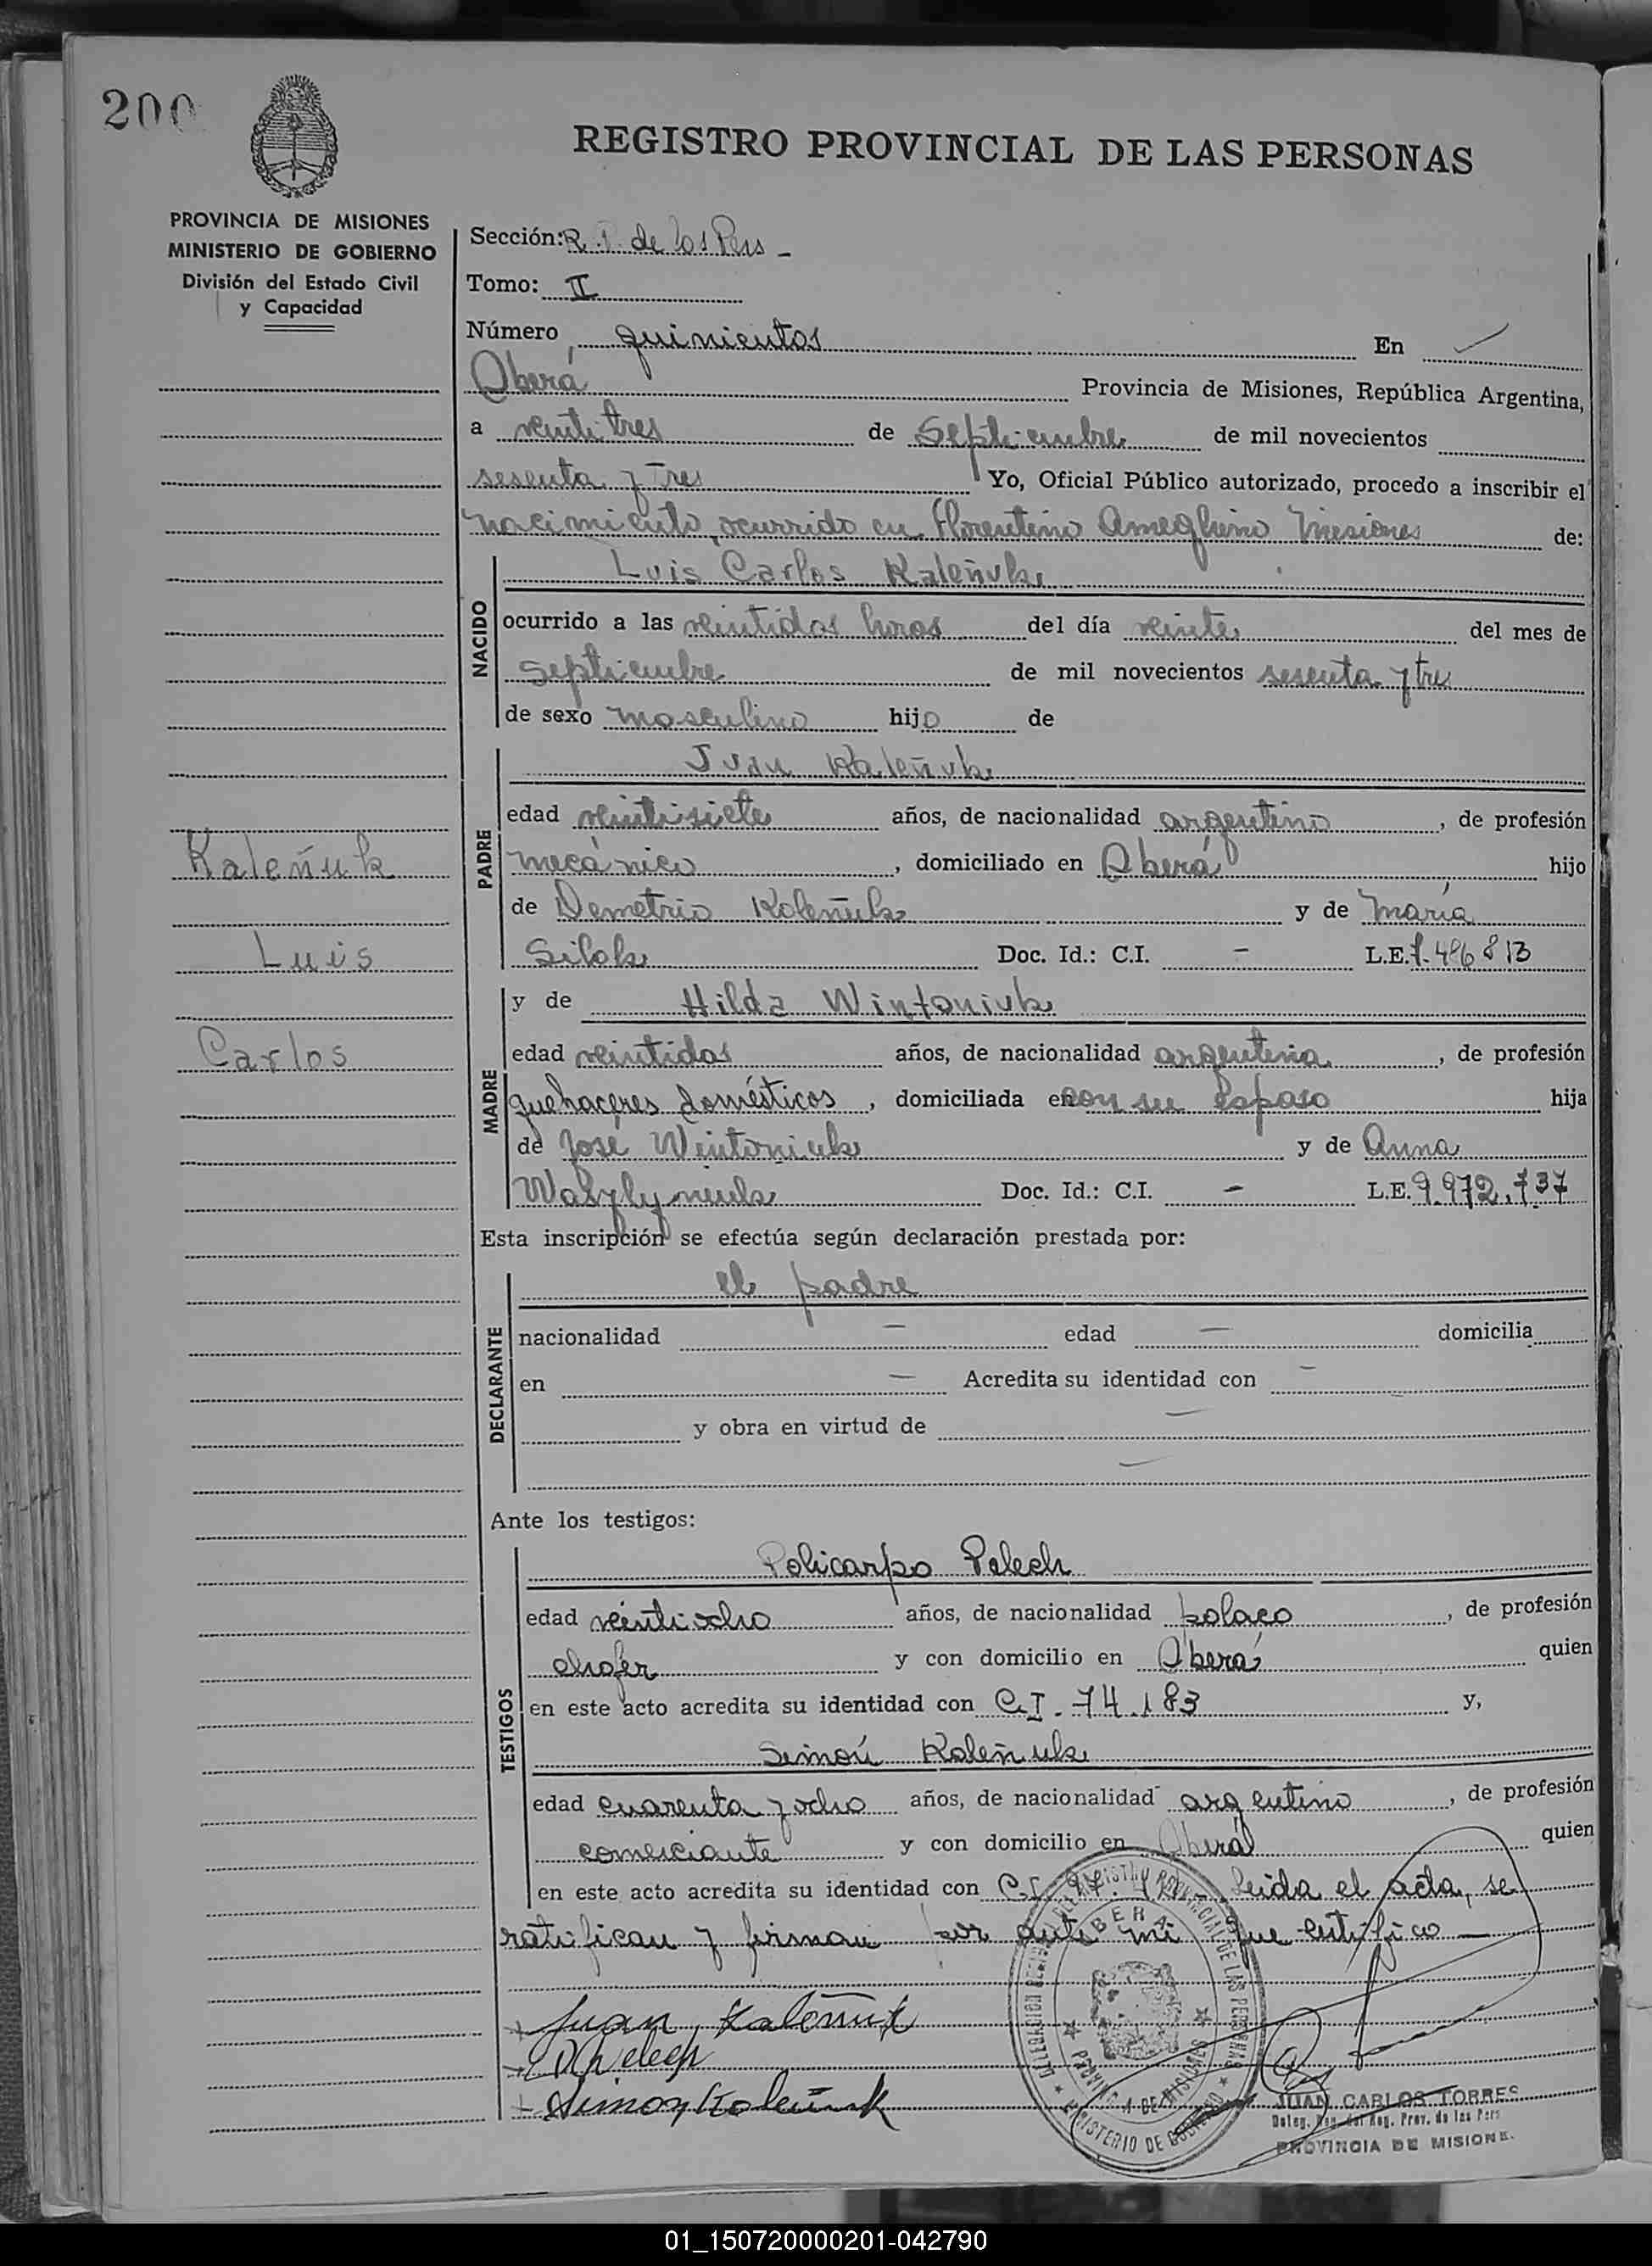 200
REGISTRO PROVINCIAL DE LAS PERSONAS
PROVINCIA DE MISIONES
MINISTERIO DE GOBIERNO
División del Estado Civil
y Capacidad
Sección: R. P. de las Pers -
Tomo: II
Número quinientos En
Oberá Provincia de Misiones, República Argentina,
a veintitres de Septiembre de mil novecientos
sesenta y tres Yo, Oficial Público autorizado, procedo a inscribir el
nacimiento, ocurrido en Florentino Ameghino Misiones de:
NACIDO
Luis Carlos Kaleñuk
ocurrido a las veintidos horas del día veinte del mes de
Septiembre de mil novecientos sesenta y tres
de sexo masculino hijo de
PADRE
Juan Kaleñuk
edad veintisiete años, de nacionalidad argentino, de profesión
mecánico, domiciliado en Oberá hijo
de Demetrio Koleñuk y de María
Silok Doc. Id.: C.I. - L.E.
Kaleñuk
Luis
Carlos
MADRE
y de Hilda Wintoniuk
edad veintidos años, de nacionalidad argentina, de profesión
quehaceres domésticos, domiciliada en con su esposo hija
de José Wintoniuk y de Anna
Doc. Id.: C.I. - L.E. 9.972.737
Esta inscripción se efectúa según declaración prestada por:
DECLARANTE
el padre
nacionalidad — edad — domicilia
en — Acredita su identidad con —
y obra en virtud de —
—
Ante los testigos:
TESTIGOS
Policarpo Pelech
edad veintiocho años, de nacionalidad polaco, de profesión
chofer y con domicilio en Oberá quien
en este acto acredita su identidad con C.I. 74.183 y,
Simón Koleñuk
edad cuarenta y ocho años, de nacionalidad argentino, de profesión
comerciante y con domicilio en Oberá quien
en este acto acredita su identidad con C.I. Leida el acta, se
ratifican y firman por ante mi que certifico —
Juan Kaleñuk
Pelech
Simon Koleñuk
OBERA
PROVINCIA DE MISIONES
MINISTERIO DE GOBIERNO
JUAN CARLOS TORRES
PROVINCIA DE MISIONE.
01_150720000201-042790